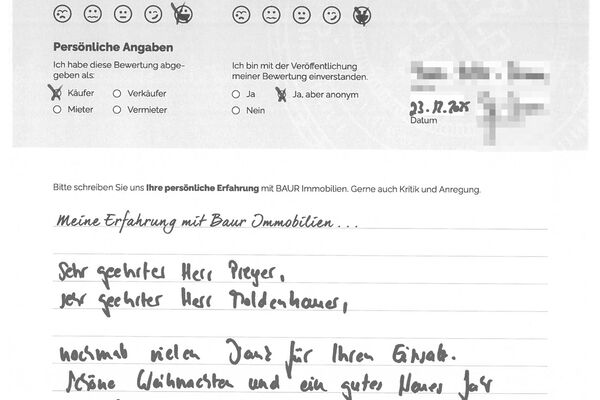 Persönliche Angaben
Ich habe diese Bewertung abge-
geben als:
Käufer
Verkäufer
Mieter
Vermieter
Ich bin mit der Veröffentlichung
meiner Bewertung einverstanden.
Ja
Ja, aber anonym
Nein
23.12.2025
Datum
Bitte schreiben Sie uns Ihre persönliche Erfahrung mit BAUR Immobilien. Gerne auch Kritik und Anregung.
Meine Erfahrung mit Baur Immobilien...
Sehr geehrter Herr Preyer,
sehr geehrter Herr Moldenhauer,
nochmals vielen Dank für Ihren Einsatz.
Schöne Weihnachten und ein gutes Neues Jahr